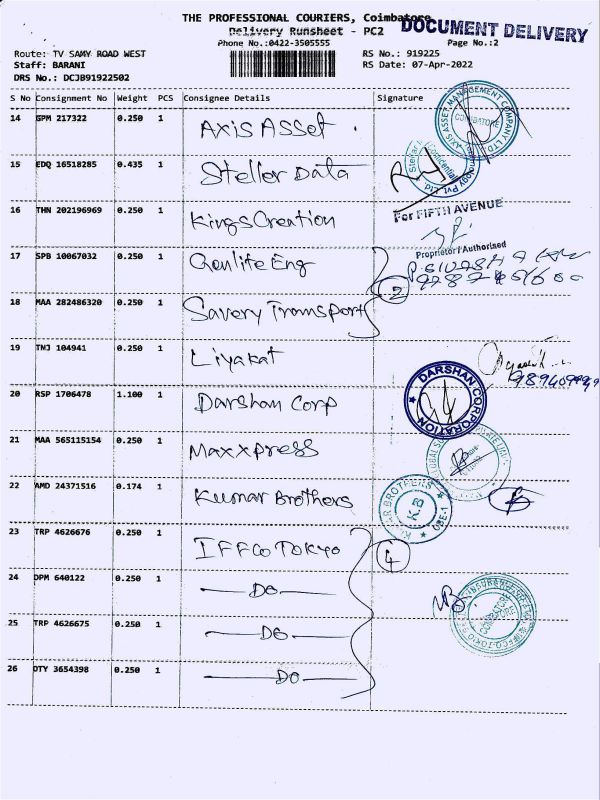 THE PROFESSIONAL COURIERS, Coimbatore
DOCUMENT DELIVERY
Delivery Runsheet - PC2
Phone No.:0422-3505555
Page No.:2
Route: TV SAMY ROAD WEST
RS No.: 919225
Staff: BARANI
RS Date: 07-Apr-2022
DRS No.: DCJB91922502
S No Consignment No Weight PCS Consignee Details Signature
14 GPM 217322 0.250 1 Axis Asset
AXIS ASSET MANAGEMENT COMPANY LTD
COIMBATORE
15 EDQ 16518285 0.435 1 Steller Data
16 THN 202196969 0.250 1 Kings Creation
For FIFTH AVENUE
Proprietor / Authorised
17 SPB 10067032 0.250 1 Genlife Eng
2
18 MAA 282486320 0.250 1 Savery Transport
19 TNJ 104941 0.250 1 Liyakat
20 RSP 1706478 1.100 1 Darshan Corp
DARSHAN CORPORATION
21 MAA 565115154 0.250 1 Maxxpress
22 AMD 24371516 0.174 1 Kumar Brothers
KUMAR BROTHERS
K.B
CBE-1
23 TRP 4626676 0.250 1 IFFCO TOKYO
4
24 DPM 640122 0.250 1 —DO—
25 TRP 4626675 0.250 1 —DO—
26 DTY 3654398 0.250 1 —DO—